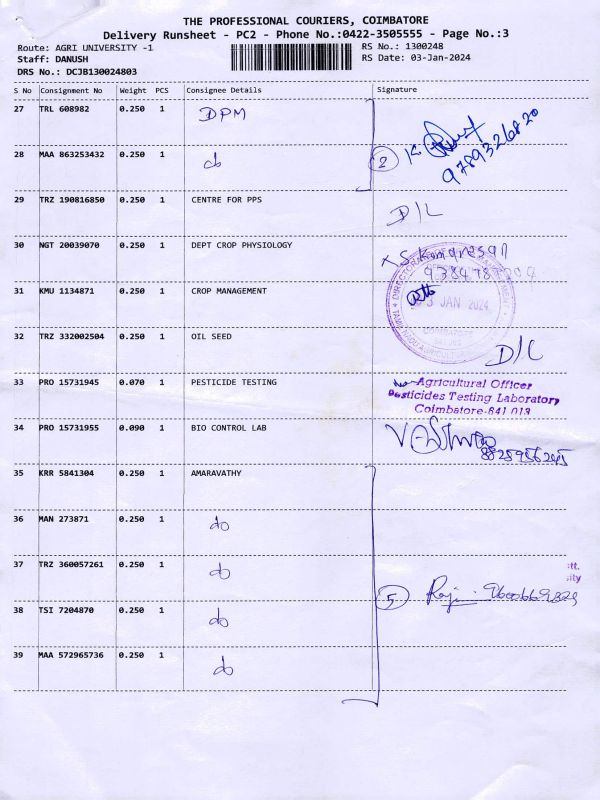 THE PROFESSIONAL COURIERS, COIMBATORE
Delivery Runsheet - PC2 - Phone No.:0422-3505555 - Page No.:3
Route: AGRI UNIVERSITY -1 RS No.: 1300248
Staff: DANUSH RS Date: 03-Jan-2024
DRS No.: DCJB130024803
S No Consignment No Weight PCS Consignee Details Signature
27 TRL 608982 0.250 1 DPM
9789326820
28 MAA 863253432 0.250 1 do 2
29 TRZ 190816850 0.250 1 CENTRE FOR PPS D/L
30 NGT 20039070 0.250 1 DEPT CROP PHYSIOLOGY
31 KMU 1134871 0.250 1 CROP MANAGEMENT
JAN 2024
COIMBATORE
32 TRZ 332002504 0.250 1 OIL SEED D/L
33 PRO 15731945 0.070 1 PESTICIDE TESTING
Agricultural Officer
Pesticides Testing Laboratory
Coimbatore-641 013
34 PRO 15731955 0.090 1 BIO CONTROL LAB
8825956245
35 KRR 5841304 0.250 1 AMARAVATHY
36 MAN 273871 0.250 1 do
37 TRZ 360057261 0.250 1 do
5 Raji
38 TSI 7204870 0.250 1 do
39 MAA 572965736 0.250 1 do